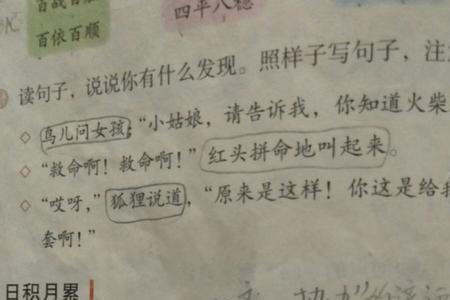 百依百顺
四平八稳
读句子，说说你有什么发现。照样子写句子，注
鸟儿问女孩：“小姑娘，请告诉我，你知道火柴
“救命啊！救命啊！”红头拼命地叫起来。
“哎呀，”狐狸说道，“原来是这样！你这是给我
套啊！”
日积月累